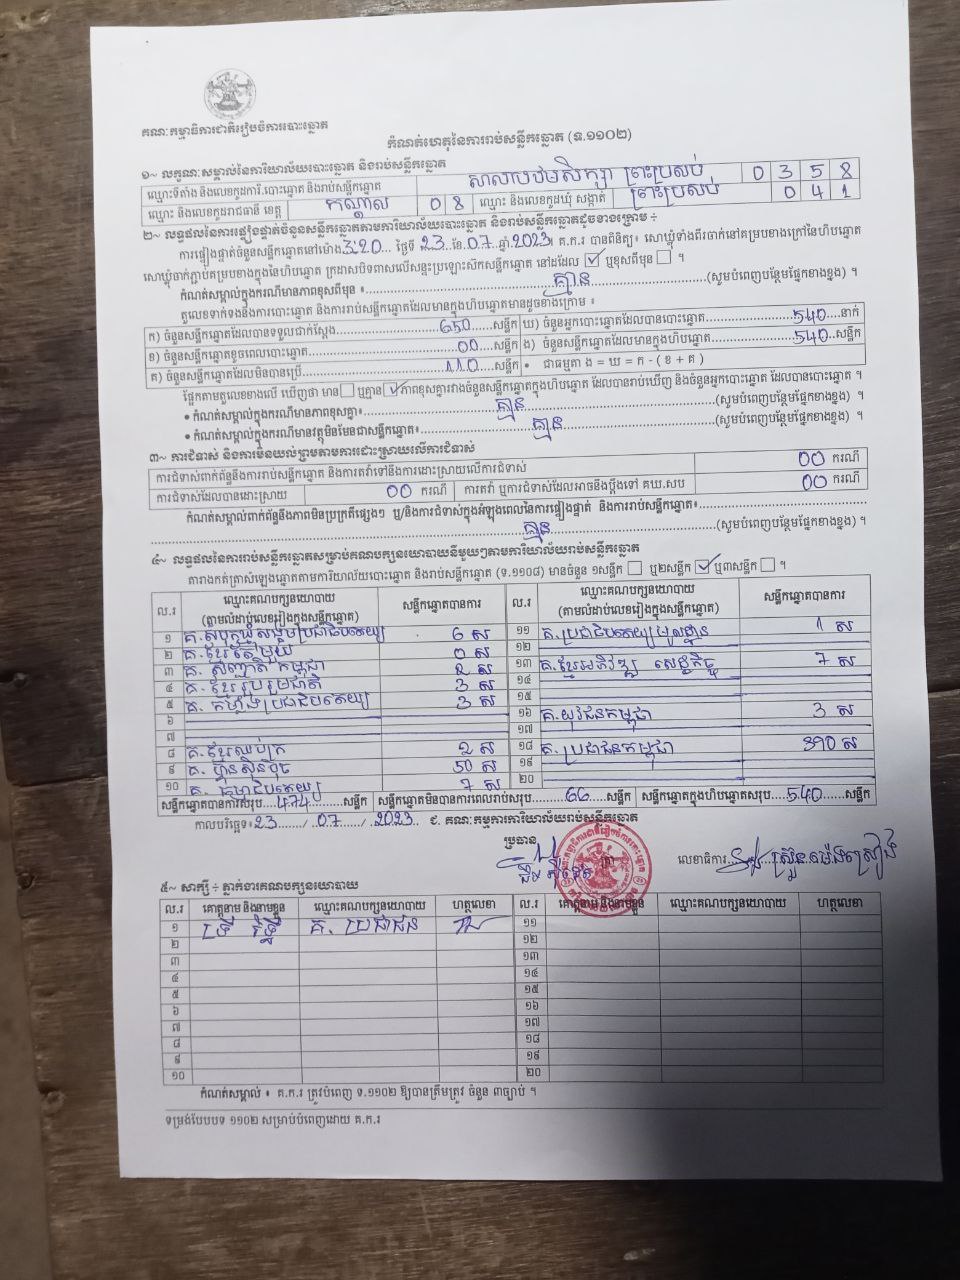 គណៈកម្មាធិការជាតិរៀបចំការបោះឆ្នោត
កំណត់ហេតុនៃការរាប់សន្លឹកឆ្នោត (ទ.១១០២)
១~ លក្ខណៈសម្គាល់នៃការិយាល័យបោះឆ្នោត និងរាប់សន្លឹកឆ្នោត
ឈ្មោះទីតាំង និងលេខកូដការិ.បោះឆ្នោត និងរាប់សន្លឹកឆ្នោត សាលាបឋមសិក្សា ព្រះប្រសប់ 0 3 5 8
ឈ្មោះ និងលេខកូដរាជធានី ខេត្ត កណ្តាល 0 8 ឈ្មោះ និងលេខកូដឃុំ សង្កាត់ ព្រះប្រសប់ 0 4 1
២~ លទ្ធផលនៃការផ្ទៀងផ្ទាត់ចំនួនសន្លឹកឆ្នោតតាមការិយាល័យបោះឆ្នោត និងរាប់សន្លឹកឆ្នោតដូចខាងក្រោម ÷
ការផ្ទៀងផ្ទាត់ចំនួនសន្លឹកឆ្នោតនៅម៉ោង 3:20 ថ្ងៃទី 23 ខែ 07 ឆ្នាំ 2023 គ.ក.រ បានពិនិត្យ៖ សោឃ្លុំទាំងពីរចាក់នៅគម្របខាងក្រៅនៃហិបឆ្នោត
សោឃ្លុំចាក់ភ្ជាប់គម្របខាងក្នុងនៃហិបឆ្នោត ក្រដាសបិទពាសលើសន្ទះប្រឡោះសឹកសន្លឹកឆ្នោត នៅដដែល ✓ ឬខុសពីមុន ។
កំណត់សម្គាល់ក្នុងករណីមានភាពខុសពីមុន ៖ គ្មាន (សូមបំពេញបន្ថែមផ្នែកខាងខ្នង) ។
តួលេខទាក់ទងនឹងការបោះឆ្នោត និងការរាប់សន្លឹកឆ្នោតដែលមានក្នុងហិបឆ្នោតមានដូចខាងក្រោម ៖
ក) ចំនួនសន្លឹកឆ្នោតដែលបានទទួលជាក់ស្តែង 650 សន្លឹក ឃ) ចំនួនអ្នកបោះឆ្នោតដែលបានបោះឆ្នោត 540 នាក់
ខ) ចំនួនសន្លឹកឆ្នោតខូចពេលបោះឆ្នោត 00 សន្លឹក ង) ចំនួនសន្លឹកឆ្នោតដែលមានក្នុងហិបឆ្នោត 540 សន្លឹក
គ) ចំនួនសន្លឹកឆ្នោតដែលមិនបានប្រើ 110 សន្លឹក • ជាធម្មតា ង = ឃ = ក - ( ខ + គ )
ផ្អែកតាមតួលេខខាងលើ ឃើញថា មាន ឬគ្មាន ✓ ភាពខុសគ្នារវាងចំនួនសន្លឹកឆ្នោតក្នុងហិបឆ្នោត ដែលបានរាប់ឃើញ និងចំនួនអ្នកបោះឆ្នោត ដែលបានបោះឆ្នោត ។
• កំណត់សម្គាល់ក្នុងករណីមានភាពខុសគ្នា៖ គ្មាន (សូមបំពេញបន្ថែមផ្នែកខាងខ្នង) ។
• កំណត់សម្គាល់ក្នុងករណីមានវត្ថុមិនមែនជាសន្លឹកឆ្នោត៖ គ្មាន (សូមបំពេញបន្ថែមផ្នែកខាងខ្នង) ។
៣~ ការជំទាស់ និងការមិនយល់ព្រមតាមការដោះស្រាយលើការជំទាស់
ការជំទាស់ពាក់ព័ន្ធនឹងការរាប់សន្លឹកឆ្នោត និងការតវ៉ាទៅនឹងការដោះស្រាយលើការជំទាស់ 00 ករណី
ការជំទាស់ដែលបានដោះស្រាយ 00 ករណី ការតវ៉ា ឬការជំទាស់ដែលអាចនឹងប្តឹងទៅ គឃ.សប 00 ករណី
កំណត់សម្គាល់ពាក់ព័ន្ធនឹងភាពមិនប្រក្រតីផ្សេងៗ ឬ/និងការជំទាស់ក្នុងអំឡុងពេលនៃការផ្ទៀងផ្ទាត់ និងការរាប់សន្លឹកឆ្នោត៖
គ្មាន (សូមបំពេញបន្ថែមផ្នែកខាងខ្នង) ។
៤~ លទ្ធផលនៃការរាប់សន្លឹកឆ្នោតសម្រាប់គណបក្សនយោបាយនីមួយៗតាមការិយាល័យរាប់សន្លឹកឆ្នោត
តារាងកត់ត្រាសំឡេងឆ្នោតតាមការិយាល័យបោះឆ្នោត និងរាប់សន្លឹកឆ្នោត (ទ.១១០៨) មានចំនួន ១សន្លឹក ឬ២សន្លឹក ✓ ឬ៣សន្លឹក ។
ល.រ ឈ្មោះគណបក្សនយោបាយ សន្លឹកឆ្នោតបានការ ល.រ ឈ្មោះគណបក្សនយោបាយ សន្លឹកឆ្នោតបានការ
(តាមលំដាប់លេខរៀងក្នុងសន្លឹកឆ្នោត) (តាមលំដាប់លេខរៀងក្នុងសន្លឹកឆ្នោត)
១ គ.សំបុកឃ្មុំសង្គមប្រជាធិបតេយ្យ 6 ស ១១ គ.ប្រជាធិបតេយ្យមូលដ្ឋាន 1 ស
២ គ.ខ្មែរតែមួយ 0 ស ១២
៣ គ. សញ្ជាតិ កម្ពុជា 2 ស ១៣ គ.ខ្មែរអភិវឌ្ឍ សេដ្ឋកិច្ច 7 ស
៤ គ. ខ្មែររួបរួមជាតិ 3 ស ១៤
៥ គ. កម្លាំងប្រជាធិបតេយ្យ 3 ស ១៥
៦ ១៦ គ.យុវជនកម្ពុជា 3 ស
៧ ១៧
៨ គ.ខ្មែរឈប់ក្រ 2 ស ១៨ គ. ប្រជាជនកម្ពុជា 390 ស
៩ គ. ហ្វ៊ុនស៊ិនប៉ិច 50 ស ១៩
១០ គ. កម្ពុជាធិបតេយ្យ 7 ស ២០
សន្លឹកឆ្នោតបានការសរុប 474 សន្លឹក សន្លឹកឆ្នោតមិនបានការពេលរាប់សរុប 66 សន្លឹក សន្លឹកឆ្នោតក្នុងហិបឆ្នោតសរុប 540 សន្លឹក
កាលបរិច្ឆេទ៖ 23 / 07 / 2023 ៩. គណៈកម្មការការិយាល័យរាប់សន្លឹកឆ្នោត
ប្រធាន
លេខាធិការ
៥~ សាក្សី ÷ ភ្នាក់ងារគណបក្សនយោបាយ
ល.រ គោត្តនាម និងនាមខ្លួន ឈ្មោះគណបក្សនយោបាយ ហត្ថលេខា ល.រ គោត្តនាម និងនាមខ្លួន ឈ្មោះគណបក្សនយោបាយ ហត្ថលេខា
១ គ. ប្រជាជន ១១
២ ១២
៣ ១៣
៤ ១៤
៥ ១៥
៦ ១៦
៧ ១៧
៨ ១៨
៩ ១៩
១០ ២០
កំណត់សម្គាល់ ៖ គ.ក.រ ត្រូវបំពេញ ទ.១១០២ ឱ្យបានត្រឹមត្រូវ ចំនួន ៣ច្បាប់ ។
ទម្រង់បែបបទ ១១០២ សម្រាប់បំពេញដោយ គ.ក.រ